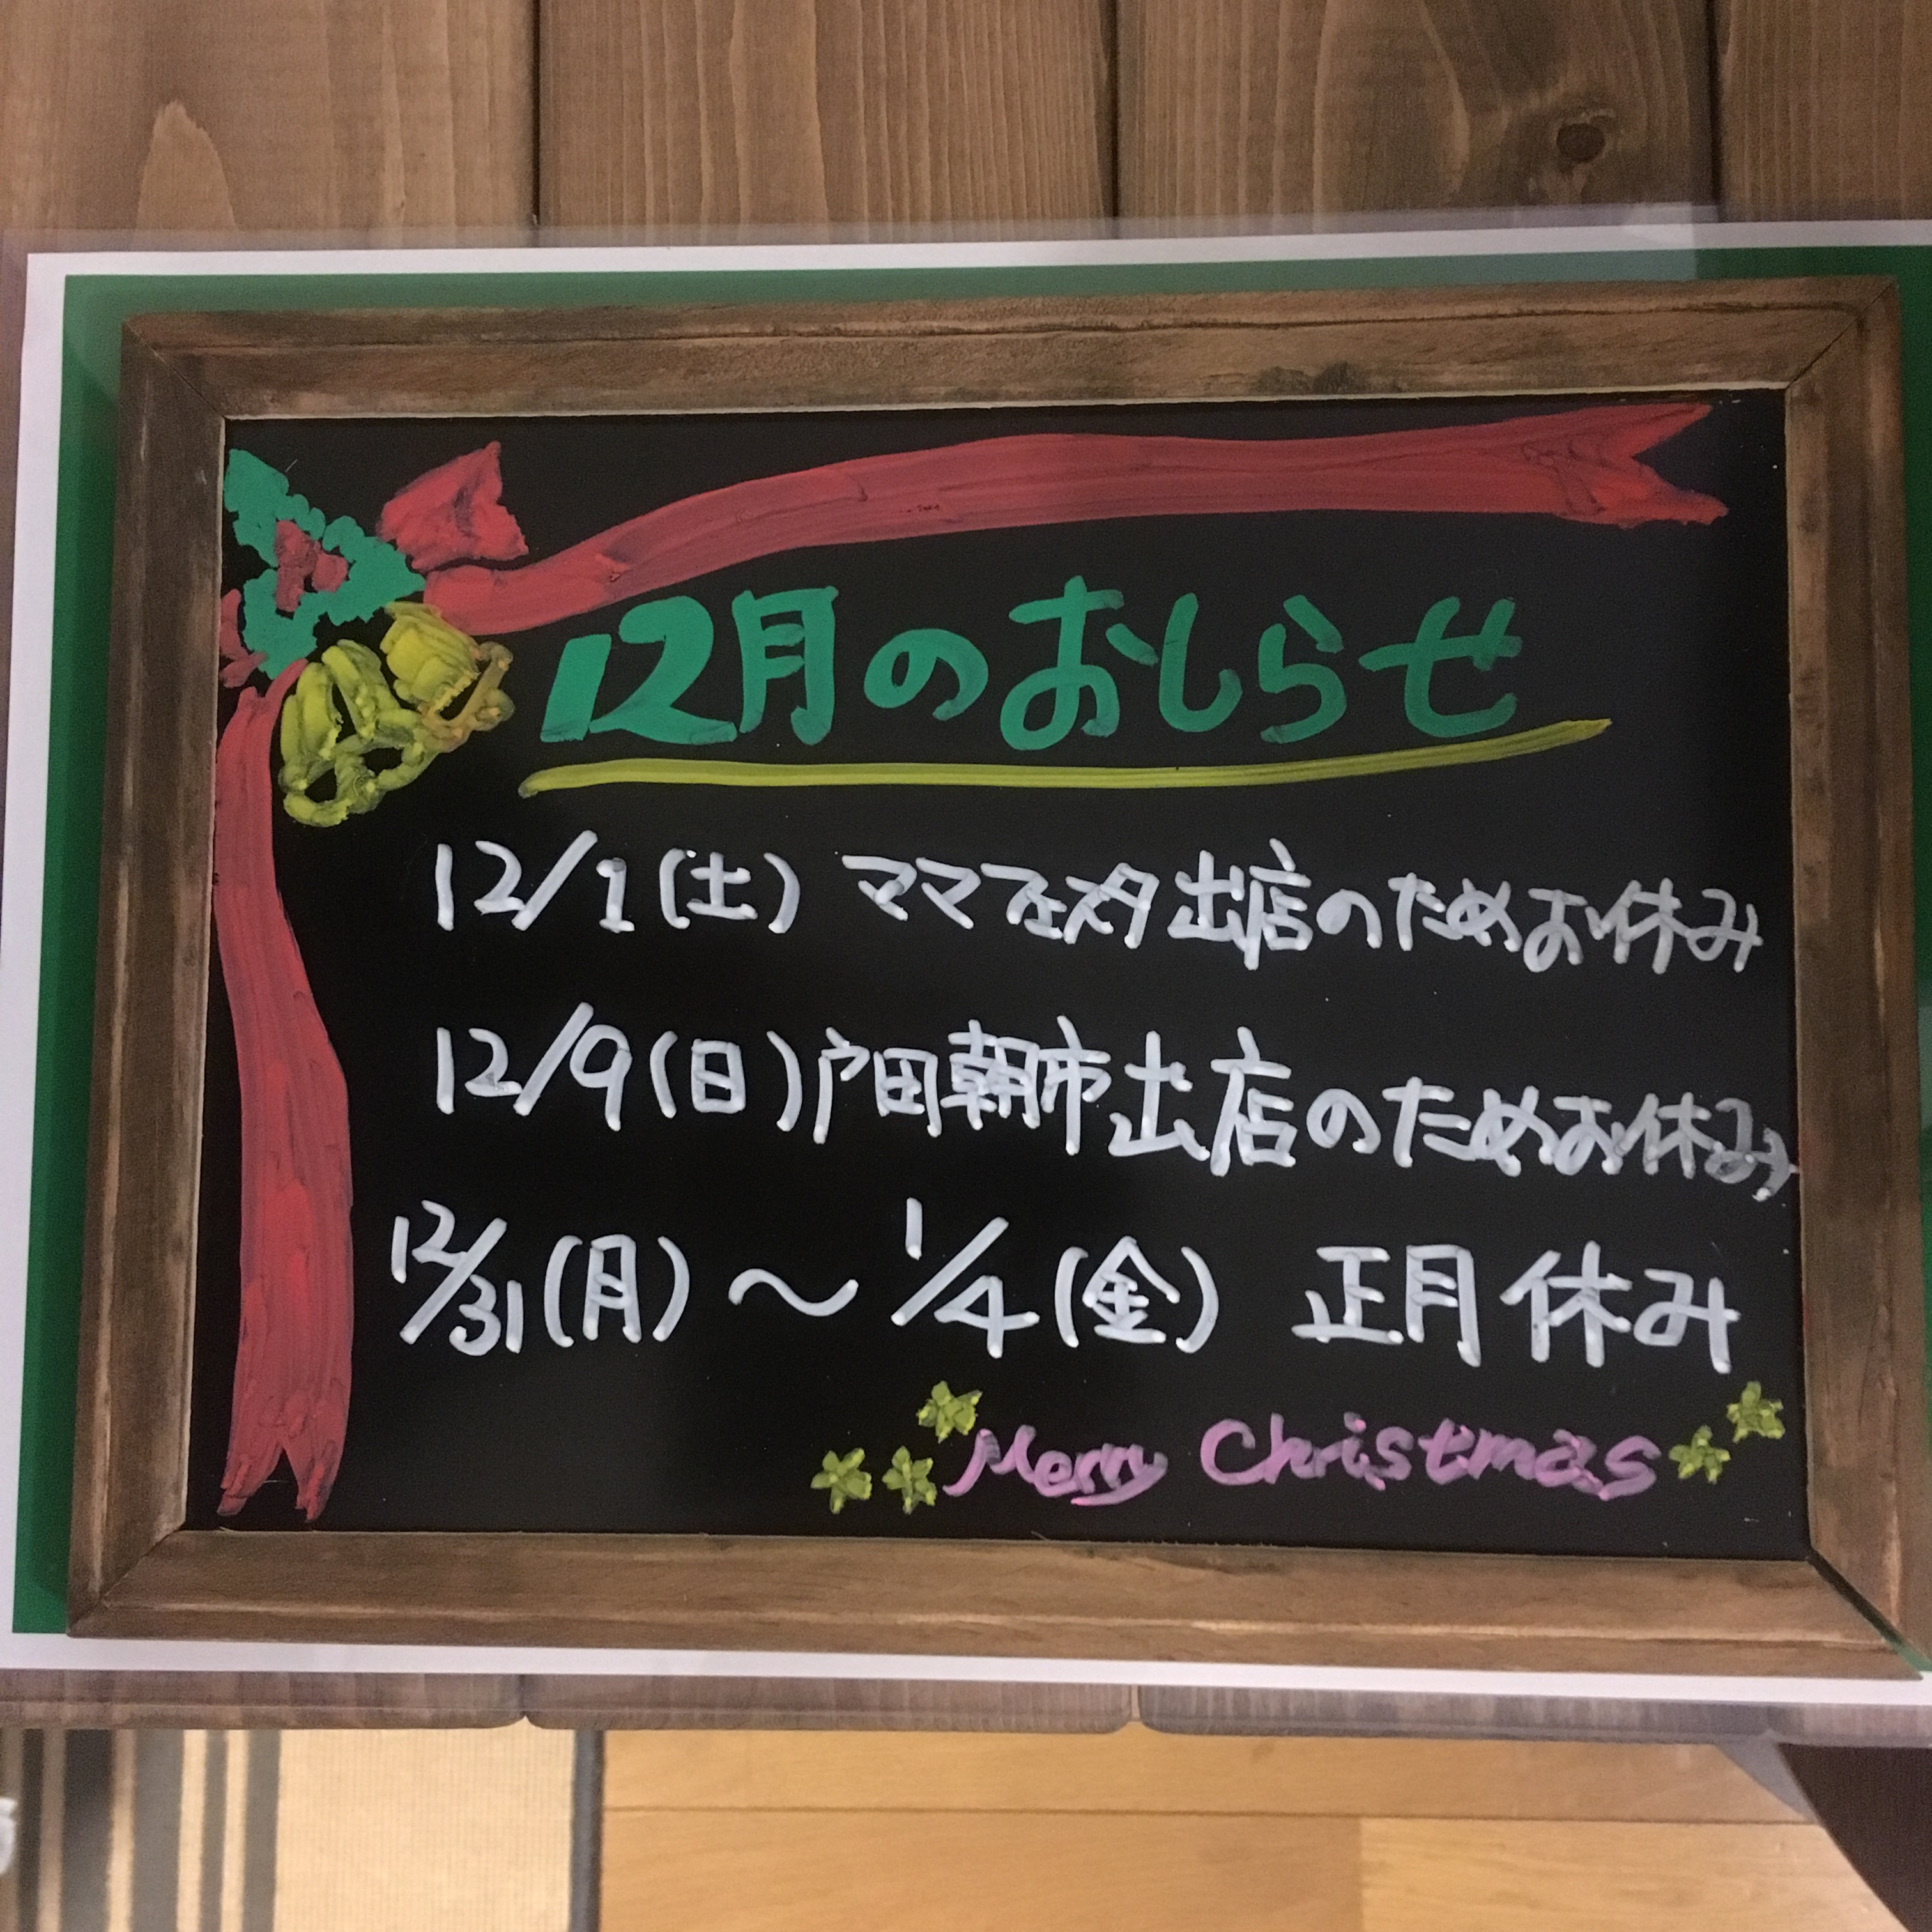 12月のおしらせ
12/1(土) ママフェスタ 出店のためお休み
12/9(日)戸田朝市出店のためお休み
12/31(月)～1/4(金) 正月休み
Merry Christmas